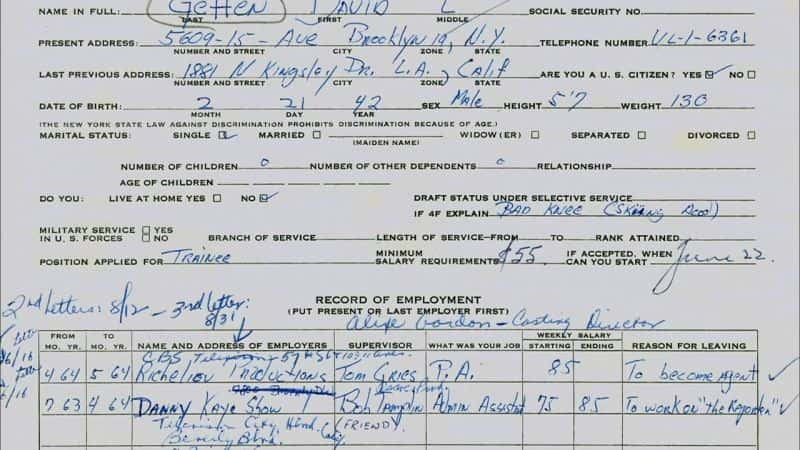 NAME IN FULL: Geffen David L SOCIAL SECURITY NO.
LAST FIRST MIDDLE
PRESENT ADDRESS: 5609-15-Ave Brooklyn 19, N.Y. TELEPHONE NUMBER UL-1-6361
NUMBER AND STREET CITY ZONE, STATE
LAST PREVIOUS ADDRESS: 1881 N Kingsley Dr. L.A., Calif ARE YOU A U. S. CITIZEN? YES NO
NUMBER AND STREET CITY ZONE, STATE
DATE OF BIRTH: 2 21 42 SEX Male HEIGHT 5'7 WEIGHT 130
MONTH DAY YEAR
(THE NEW YORK STATE LAW AGAINST DISCRIMINATION PROHIBITS DISCRIMINATION BECAUSE OF AGE.)
MARITAL STATUS: SINGLE MARRIED WIDOW(ER) SEPARATED DIVORCED
(MAIDEN NAME)
NUMBER OF CHILDREN 0 NUMBER OF OTHER DEPENDENTS 0 RELATIONSHIP
AGE OF CHILDREN
DO YOU: LIVE AT HOME YES NO DRAFT STATUS UNDER SELECTIVE SERVICE
IF 4F EXPLAIN BAD KNEE (Skiing
MILITARY SERVICE YES
IN U. S. FORCES NO BRANCH OF SERVICE LENGTH OF SERVICE—FROM TO RANK ATTAINED
POSITION APPLIED FOR Trainee MINIMUM SALARY REQUIREMENTS $55. IF ACCEPTED, WHEN CAN YOU START June 22
2nd Letters: 8/12 - 3rd letter: 8/31
RECORD OF EMPLOYMENT
(PUT PRESENT OR LAST EMPLOYER FIRST)
Gordon - Casting Director
FROM TO WEEKLY SALARY
MO. YR. MO. YR. NAME AND ADDRESS OF EMPLOYERS SUPERVISOR WHAT WAS YOUR JOB STARTING ENDING REASON FOR LEAVING
CBS
4 64 5 64 Richelieu Productions Tom Gries P.A. 85 To become Agent
7 63 4 64 Danny Kaye Show Bob Admin Assistant 75 85 To work on "the Reporter"
Television City, (FRIEND)
Beverly Blvd.